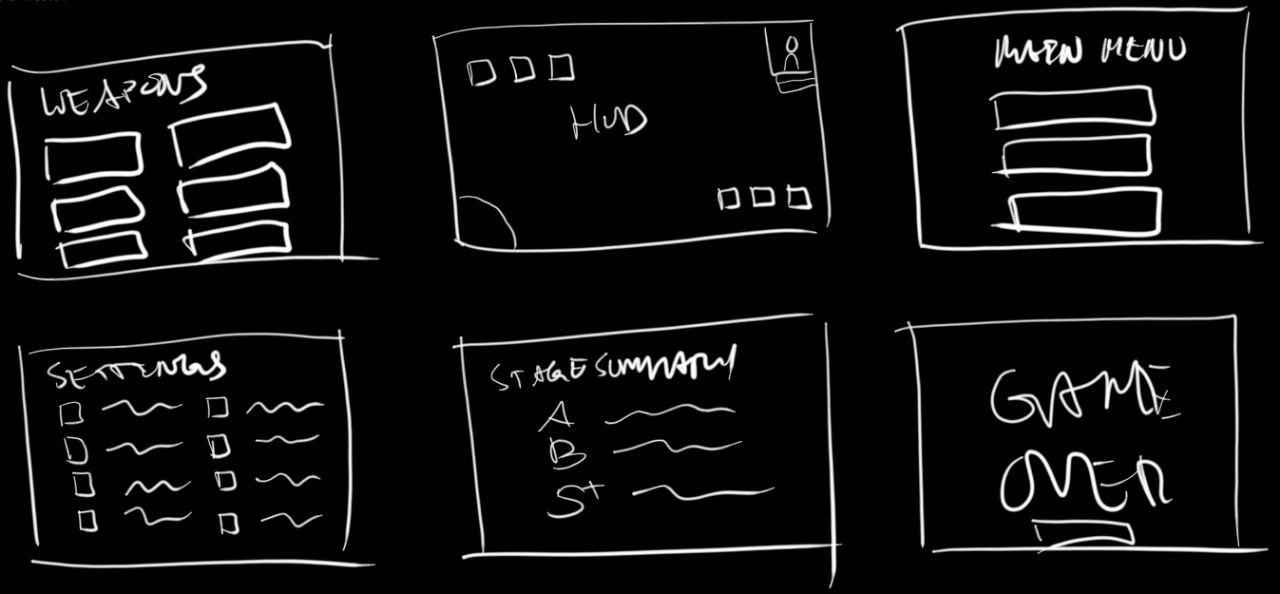 WEAPONS
HUD
MAIN MENU
SETTINGS
STAGE SUMMARY
A
B
S+
GAME
OVER